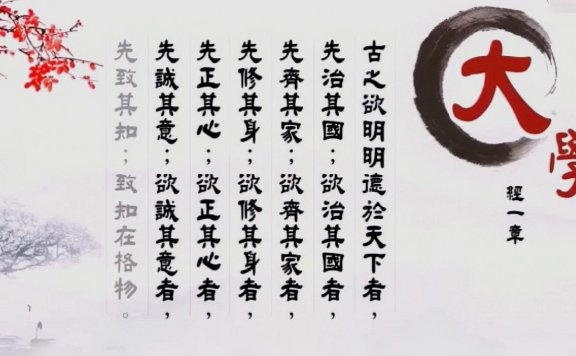 大學
經一章
古之欲明明德於天下者，
先治其國；欲治其國者，
先齊其家；欲齊其家者，
先修其身；欲修其身者，
先正其心；欲正其心者，
先誠其意；欲誠其意者，
先致其知；致知在格物。